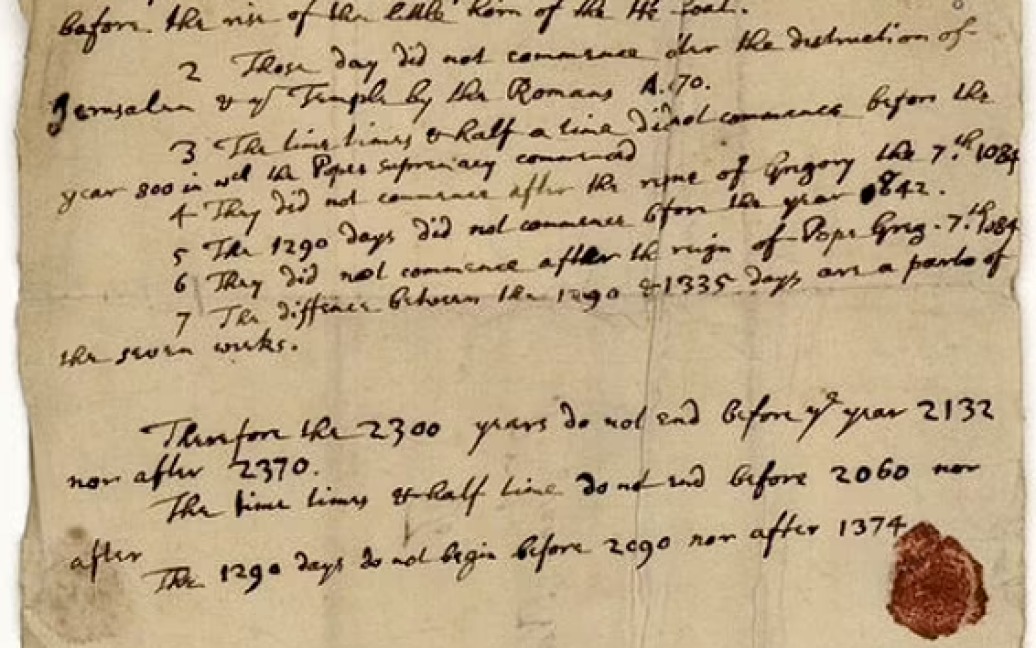 before the rise of the little horn of the He Goat.
2 Those day did not commence after the destruction of
Jerusalem & ye Temple by the Romans A. 70.
3 The time times & half a time did not commence before the
year 800 in wch the Popes supremacy commenced
4 They did not commence after the reigne of Gregory the 7th. 1084
5 The 1290 days did not commence bfore the year 842.
6 They did not commence after the reign of Pope Greg. 7th. 1084
7 The diffence between the 1290 & 1335 days are a parts of
the seven weeks.
Therefore the 2300 years do not end before ye year 2132
nor after 2370.
The time times & half time do not end before 2060 nor
after
The 1290 days do not begin before 2090 nor after 1374